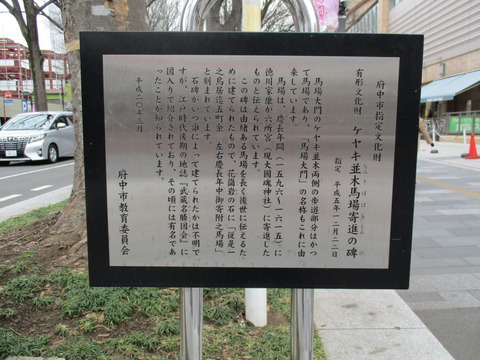 府中市指定文化財
有形文化財　ケヤキ並木馬場寄進の碑
指定　平成五年一二月二二日
馬場大門のケヤキ並木両側の歩道部分はかつ
て馬場であり、「馬場大門」の名称もこれに由
来しています。
馬場は、慶長年間（一五九六〜一六一五）に
徳川家康が六所宮（現大國魂神社）に寄進した
ものと伝えられています。
この碑は由緒ある馬場を長く後世に伝えるた
めに建てられたもので、花崗岩の石に「従是一
之鳥居迄五町余　左右慶長年中御寄附之馬場」
と刻まれています。
石碑がいつ誰によって建てられたかは不明で
すが、江戸時代後期の地誌『武蔵名勝図会』に
図入りで紹介されており、その頃には有名であ
ったことが知られています。
平成二〇年三月
府中市教育委員会